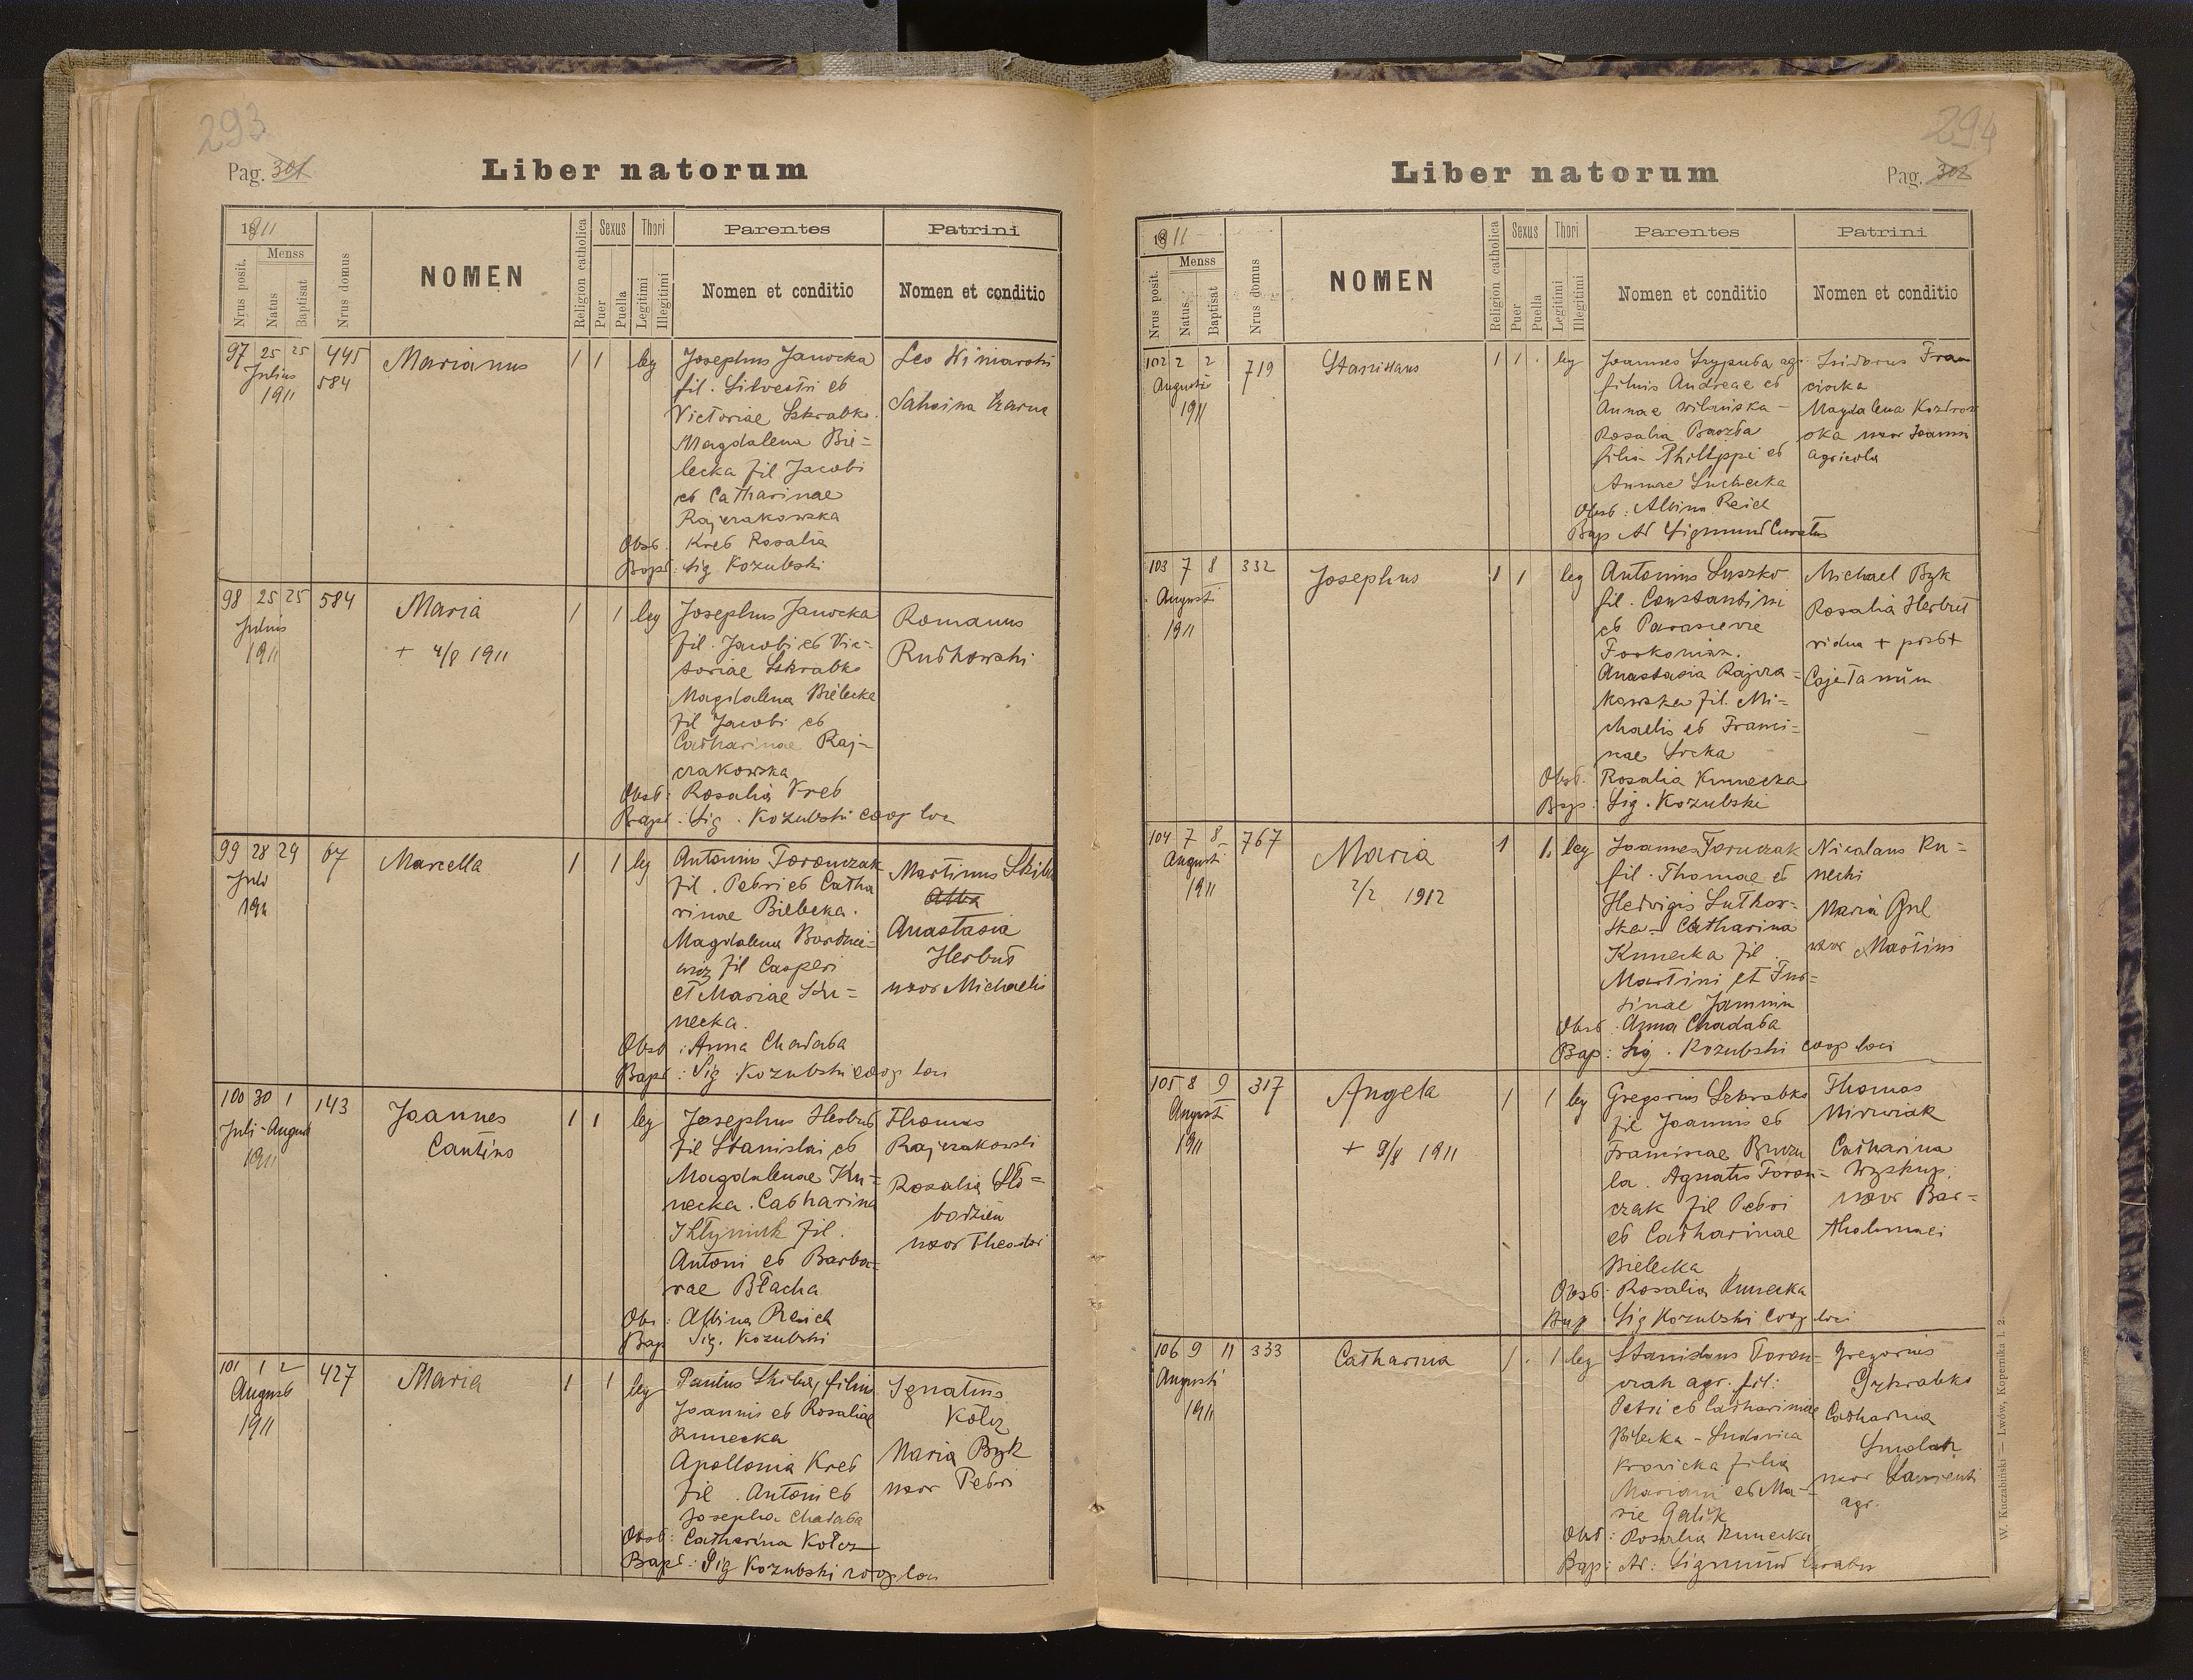 293
Pag. 301
Liber natorum
1911
Nrus posit.
Menss
Natus
Baptisat
Nrus domus
NOMEN
Religion catholica
Sexus
Puer
Puella
Thori
Legitimi
Illegitimi
Parentes
Nomen et conditio
Patrini
Nomen et conditio
97 25 25 445
Julius 584
1911
Marianus
1 1 leg
Josephus Janocka
fil. Silvestri et
Victoriae Szkrabko.
Magdalena Bie=
lecka fil Jacobi
et Catharinae
Rajczakowska
Obst. Kret Rosalia
Bapt: Sig Kozubski
Leo Winiarski
98 25 25 584
Julius
1911
Maria
+ 4/8 1911
1 1 leg
Josephus Janocka
fil. Jacobi et Vic=
toriae Szkrabko
Magdalena Bielecka
fil Jacobi et
Catharinae Raj=
czakowska
Obst: Rosalia Kret
Bapt: Sig. Kozubski coop loci
Romanus
Rutkowski
99 28 29 67
Juli
1911
Marcella
1 1 leg
Antonius Toronczak
fil. Petri et Catha
rinae Bielecka.
Magdalena
fil Casperi
et Mariae Ku=
necka.
Obst: Anna Chadaba
Bapt: Sig. Kozubski coop loci
Martinus Skiba
Anastasia
Herbut
uxor Michaelis
100 30 1 143
Juli - August
1911
Joannes
Cantius
1 1 leg
Josephus Herbut
fil Stanislai et
Magdalenae Ku=
necka. Catharina
fil.
Antoni et Barba=
rae Błacha
Obs: Albina Reich
Bap Sig. Kozubski
Thomas
Rajczakowski
Rosalia Sło=
bodzien
uxor Theodori
101 1 2 427
August
1911
Maria
1 1 leg
Paulus Skiba, filius
Joannis et Rosaliae
Kunecka
Apollonia Kret
fil. Antoni et
Josepha Chadaba
Obst: Catharina Kołcz
Bapt: Sig Kozubski coop loci
Ignatius
Kołcz
Maria Byk
uxor Petri
294
Pag. 302
Liber natorum
1911
Nrus posit.
Menss
Natus
Baptisat
Nrus domus
NOMEN
Religion catholica
Sexus
Puer
Puella
Thori
Legitimi
Illegitimi
Parentes
Nomen et conditio
Patrini
Nomen et conditio
102 2 2 719
Augusti
1911
Stanislaus
1 1 leg
Joannes Szypuła agr.
filius Andreae et
Annae Wilenska -
Rosalia
filia Philippi et
Annae Suchecka
Obst: Albina Reich
Bap Ad Sigmund Curatus
Isidorus Fran
ciska
Magdalena
uxor Joanni
agricola
103 7 8 332
Augusti
1911
Josephus
1 1 leg
Antonius Suszko
fil. Constantini
et
Anastasia Rajcza=
kowska fil. Mi=
chaelis et Franci=
nae
Obst. Rosalia Kunecka
Bap: Sig. Kozubski
Michael Byk
Rosalia Herbut
vidua + post+
Cajetanum
104 7 8 767
Augusti
1911
Maria
2/2 1912
1 1 leg
Joannes Toruczak
fil. Thomae et
Hedvigis Sutkow=
ska - Catharina
Kunecka fil.
Martini et Jus=
tinae
Obst: Anna Chadaba
Bap: Sig. Kozubski coop loci
Nicolaus Ku=
necki
Maria
uxor Martini
105 8 9 317
Augusti
1911
Angela
+ 9/8 1911
1 1 leg
Gregorius Szkrabko
fil Joannis et
Francisae
la. Agnatis Toron=
czak fil Petri
et Catharinae
Bielecka
Obst: Rosalia Kunecka
Bap. Sig Kozubski coop loci
Thomas
Catharina
uxor Bar=
tholomaei
106 9 11 333
Augusti
1911
Catharina
1 . 1 leg
Stanislaus Toron=
czak agr. fil:
Petri et Catharinae
Bilecka - Ludovica
Krovicka filia
Mariani et Ma=
rie Galik
Obst: Rosalia Kunecka
Bap: Ad: Sigmund Curatus
Gregorius
Szkrabko
Catharina
Smolak
uxor Laurenti
agr.
W. Kuczabiński — Lwów, Kopernika l. 2.